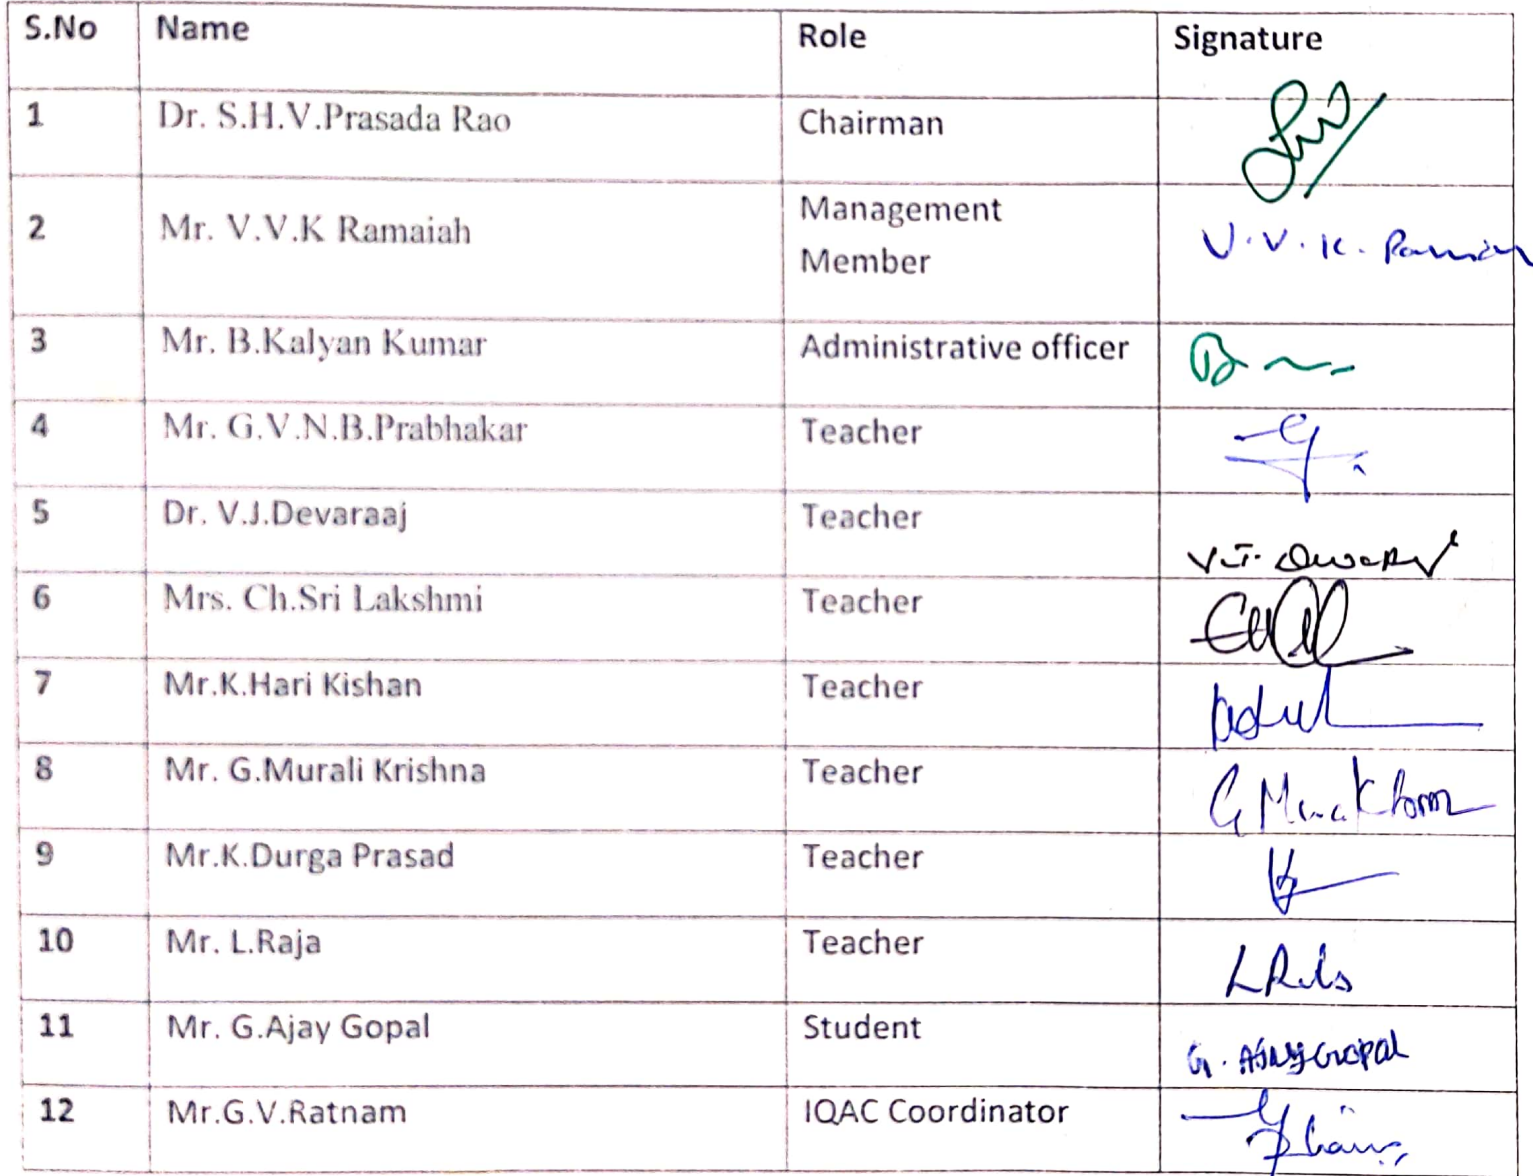 S.No Name Role Signature
1 Dr. S.H.V.Prasada Rao Chairman
2 Mr. V.V.K Ramaiah Management
Member V.V.K.
3 Mr. B.Kalyan Kumar Administrative officer
4 Mr. G.V.N.B.Prabhakar Teacher
5 Dr. V.J.Devaraaj Teacher
6 Mrs. Ch.Sri Lakshmi Teacher
7 Mr.K.Hari Kishan Teacher
8 Mr. G.Murali Krishna Teacher
9 Mr.K.Durga Prasad Teacher
10 Mr. L.Raja Teacher
11 Mr. G.Ajay Gopal Student G. Ajay Gopal
12 Mr.G.V.Ratnam IQAC Coordinator